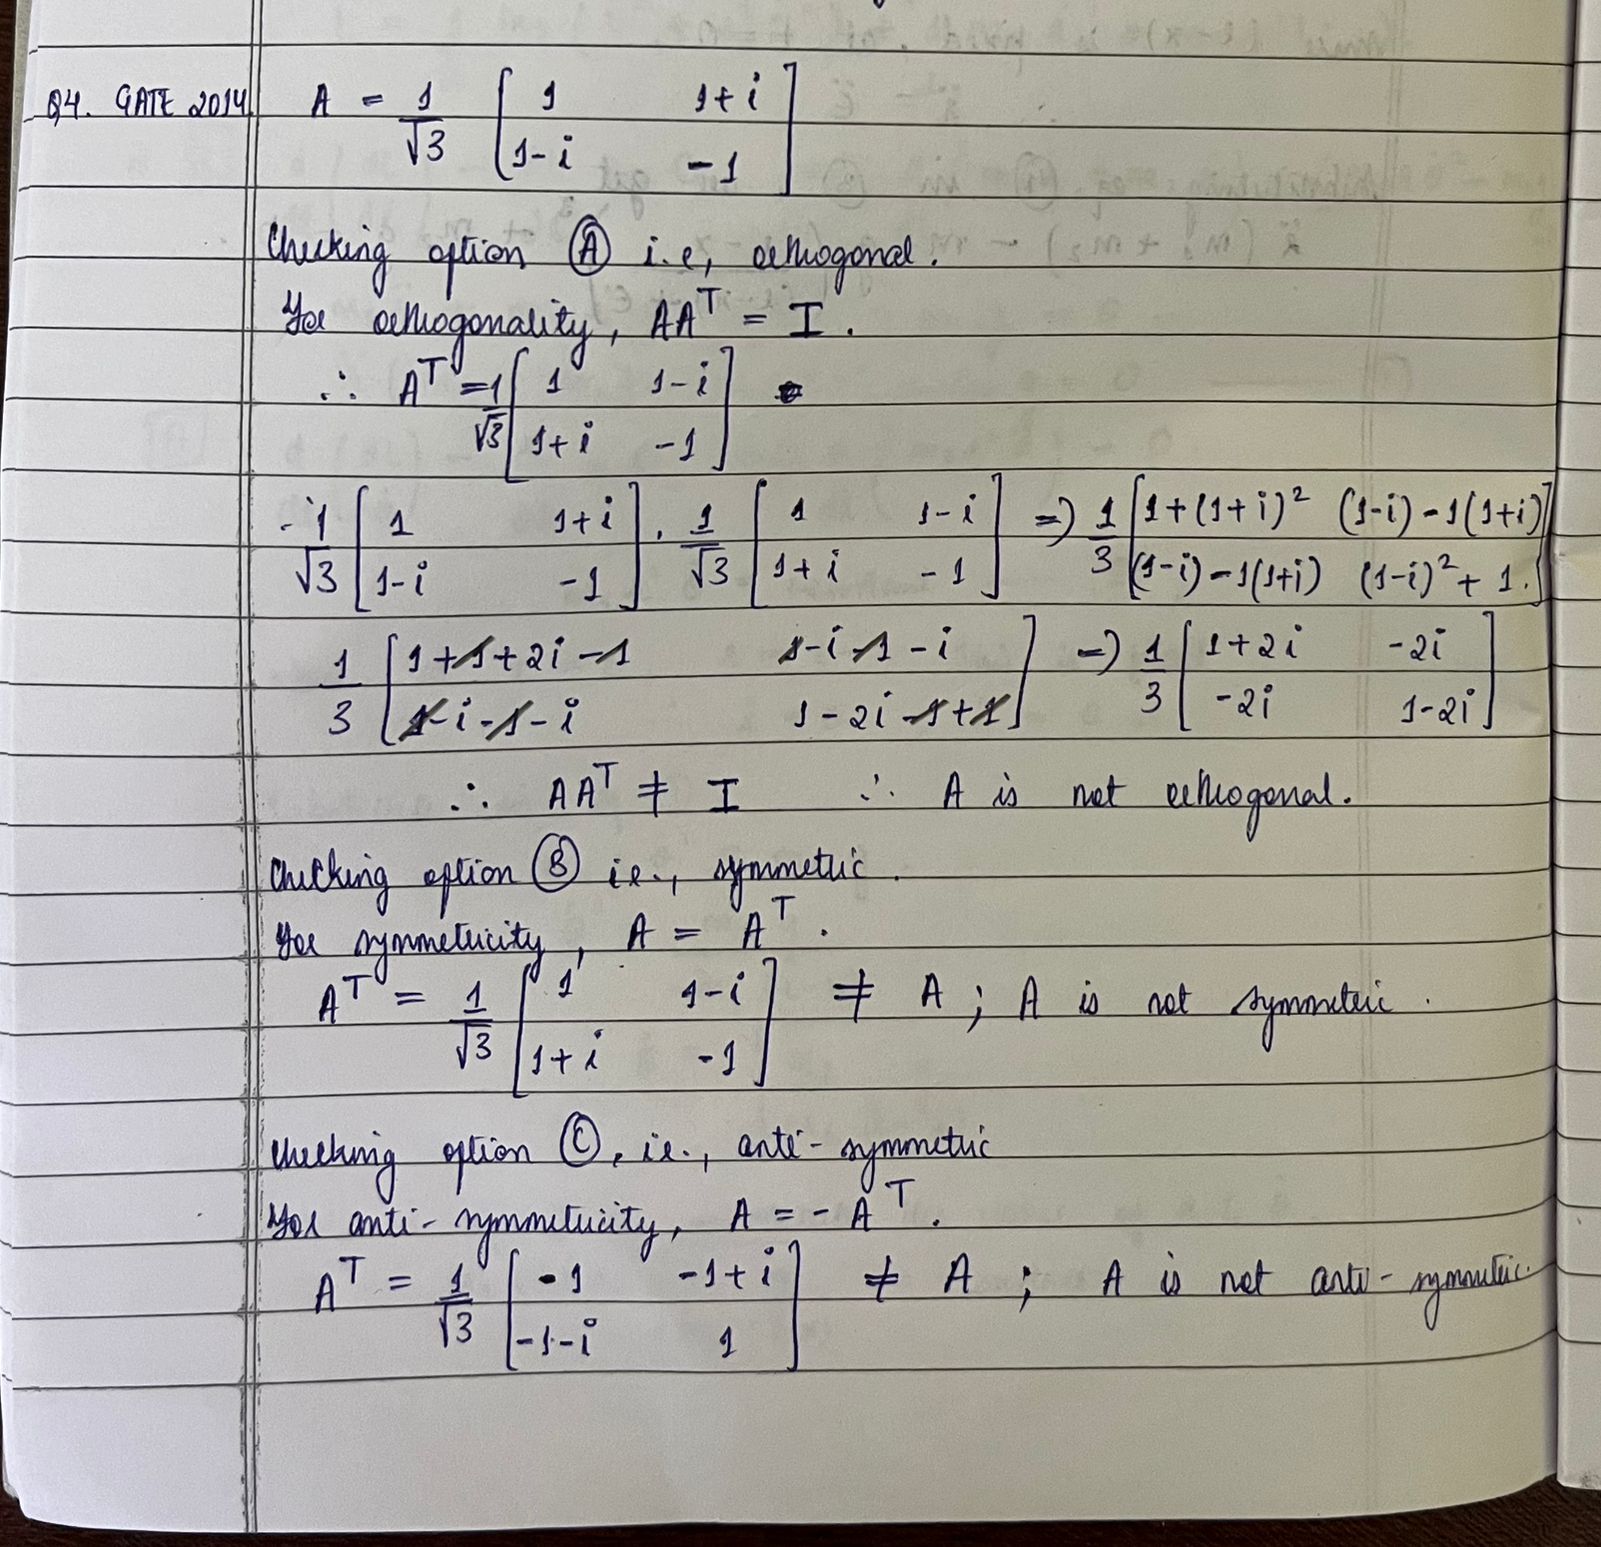 Q4. GATE 2014 A = 1/√3 [1 1+i; 1-i -1]
Checking option Ⓐ i.e, orthogonal.
For orthogonality, AAᵀ = I.
∴ Aᵀ = 1/√3 [1 1-i; 1+i -1]
1/√3 [1 1+i; 1-i -1] . 1/√3 [1 1-i; 1+i -1] => 1/3 [1+(1+i)² (1-i)-1(1+i); (1-i)-1(1+i) (1-i)²+1.]
1/3 [1+1+2i-1 1-i-1-i; 1-i-1-i 1-2i-1+1] => 1/3 [1+2i -2i; -2i 1-2i]
∴ AAᵀ ≠ I ∴ A is not orthogonal.
Checking option Ⓑ i.e., symmetric.
For symmetricity, A = Aᵀ.
Aᵀ = 1/√3 [1 1-i; 1+i -1] ≠ A ; A is not symmetric.
Checking option Ⓒ, i.e., anti-symmetric
For anti-symmetricity, A = -Aᵀ.
Aᵀ = 1/√3 [-1 -1+i; -1-i 1] ≠ A ; A is not anti-symmetric.